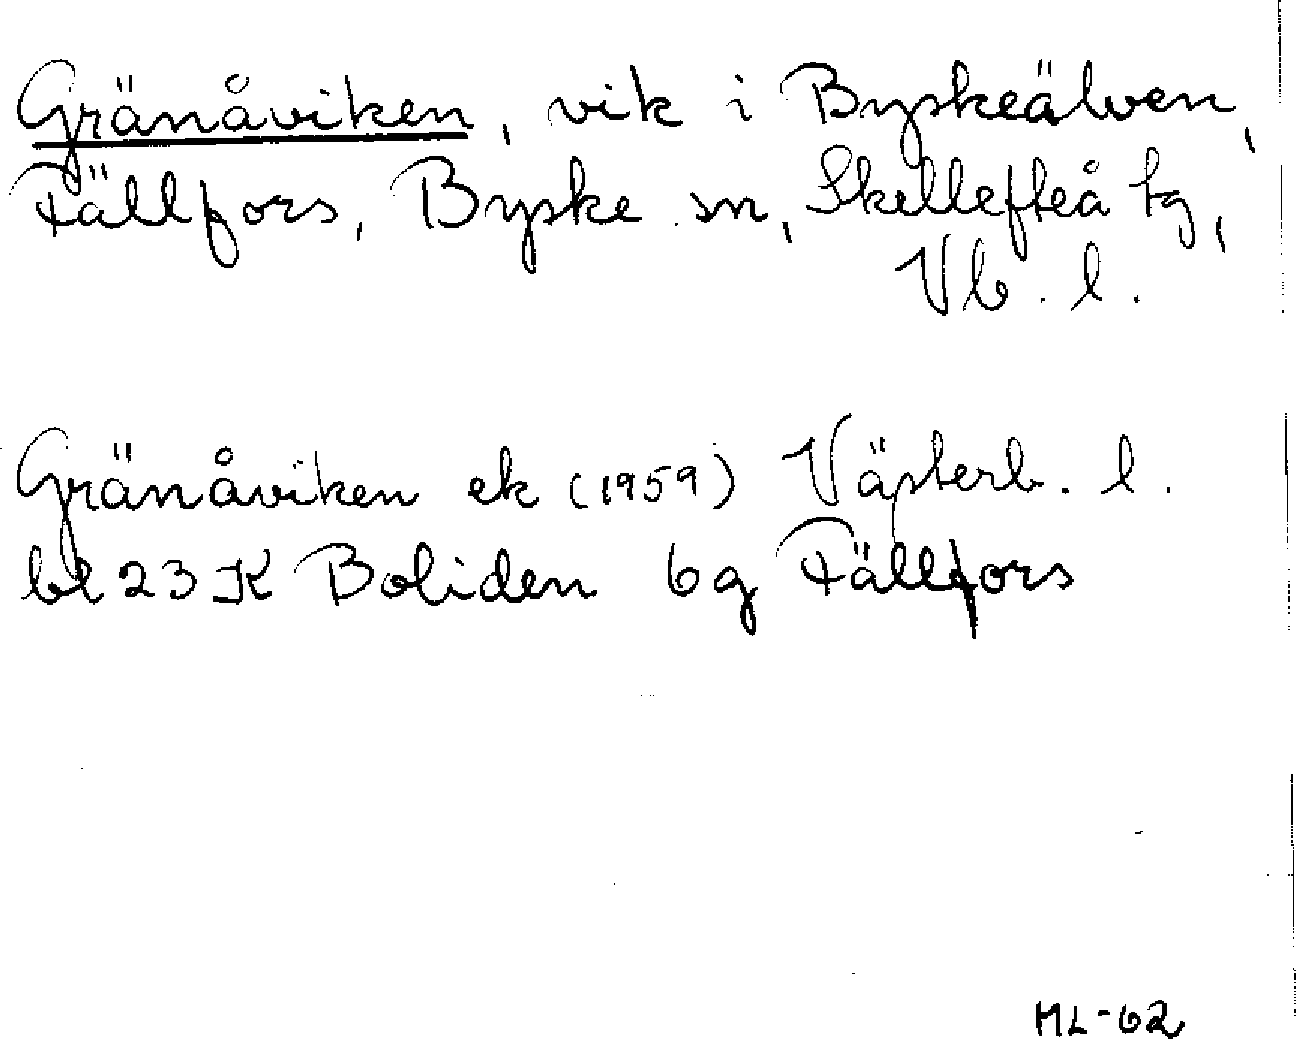 Gränåviken, vik i Byskeälven,
Fällfors, Byske sn, Skellefteå tg,
Vb. l.
Gränåviken ek (1959) Västerb. l.
bl 23 K Boliden 6g Fällfors
ML-62